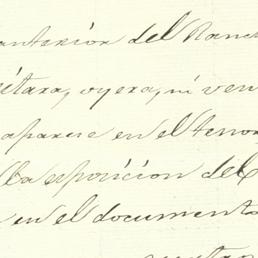 anterior del Ranc
étara, oyera, ni ven
aparece en el tenor
la esposicion del
en el documento